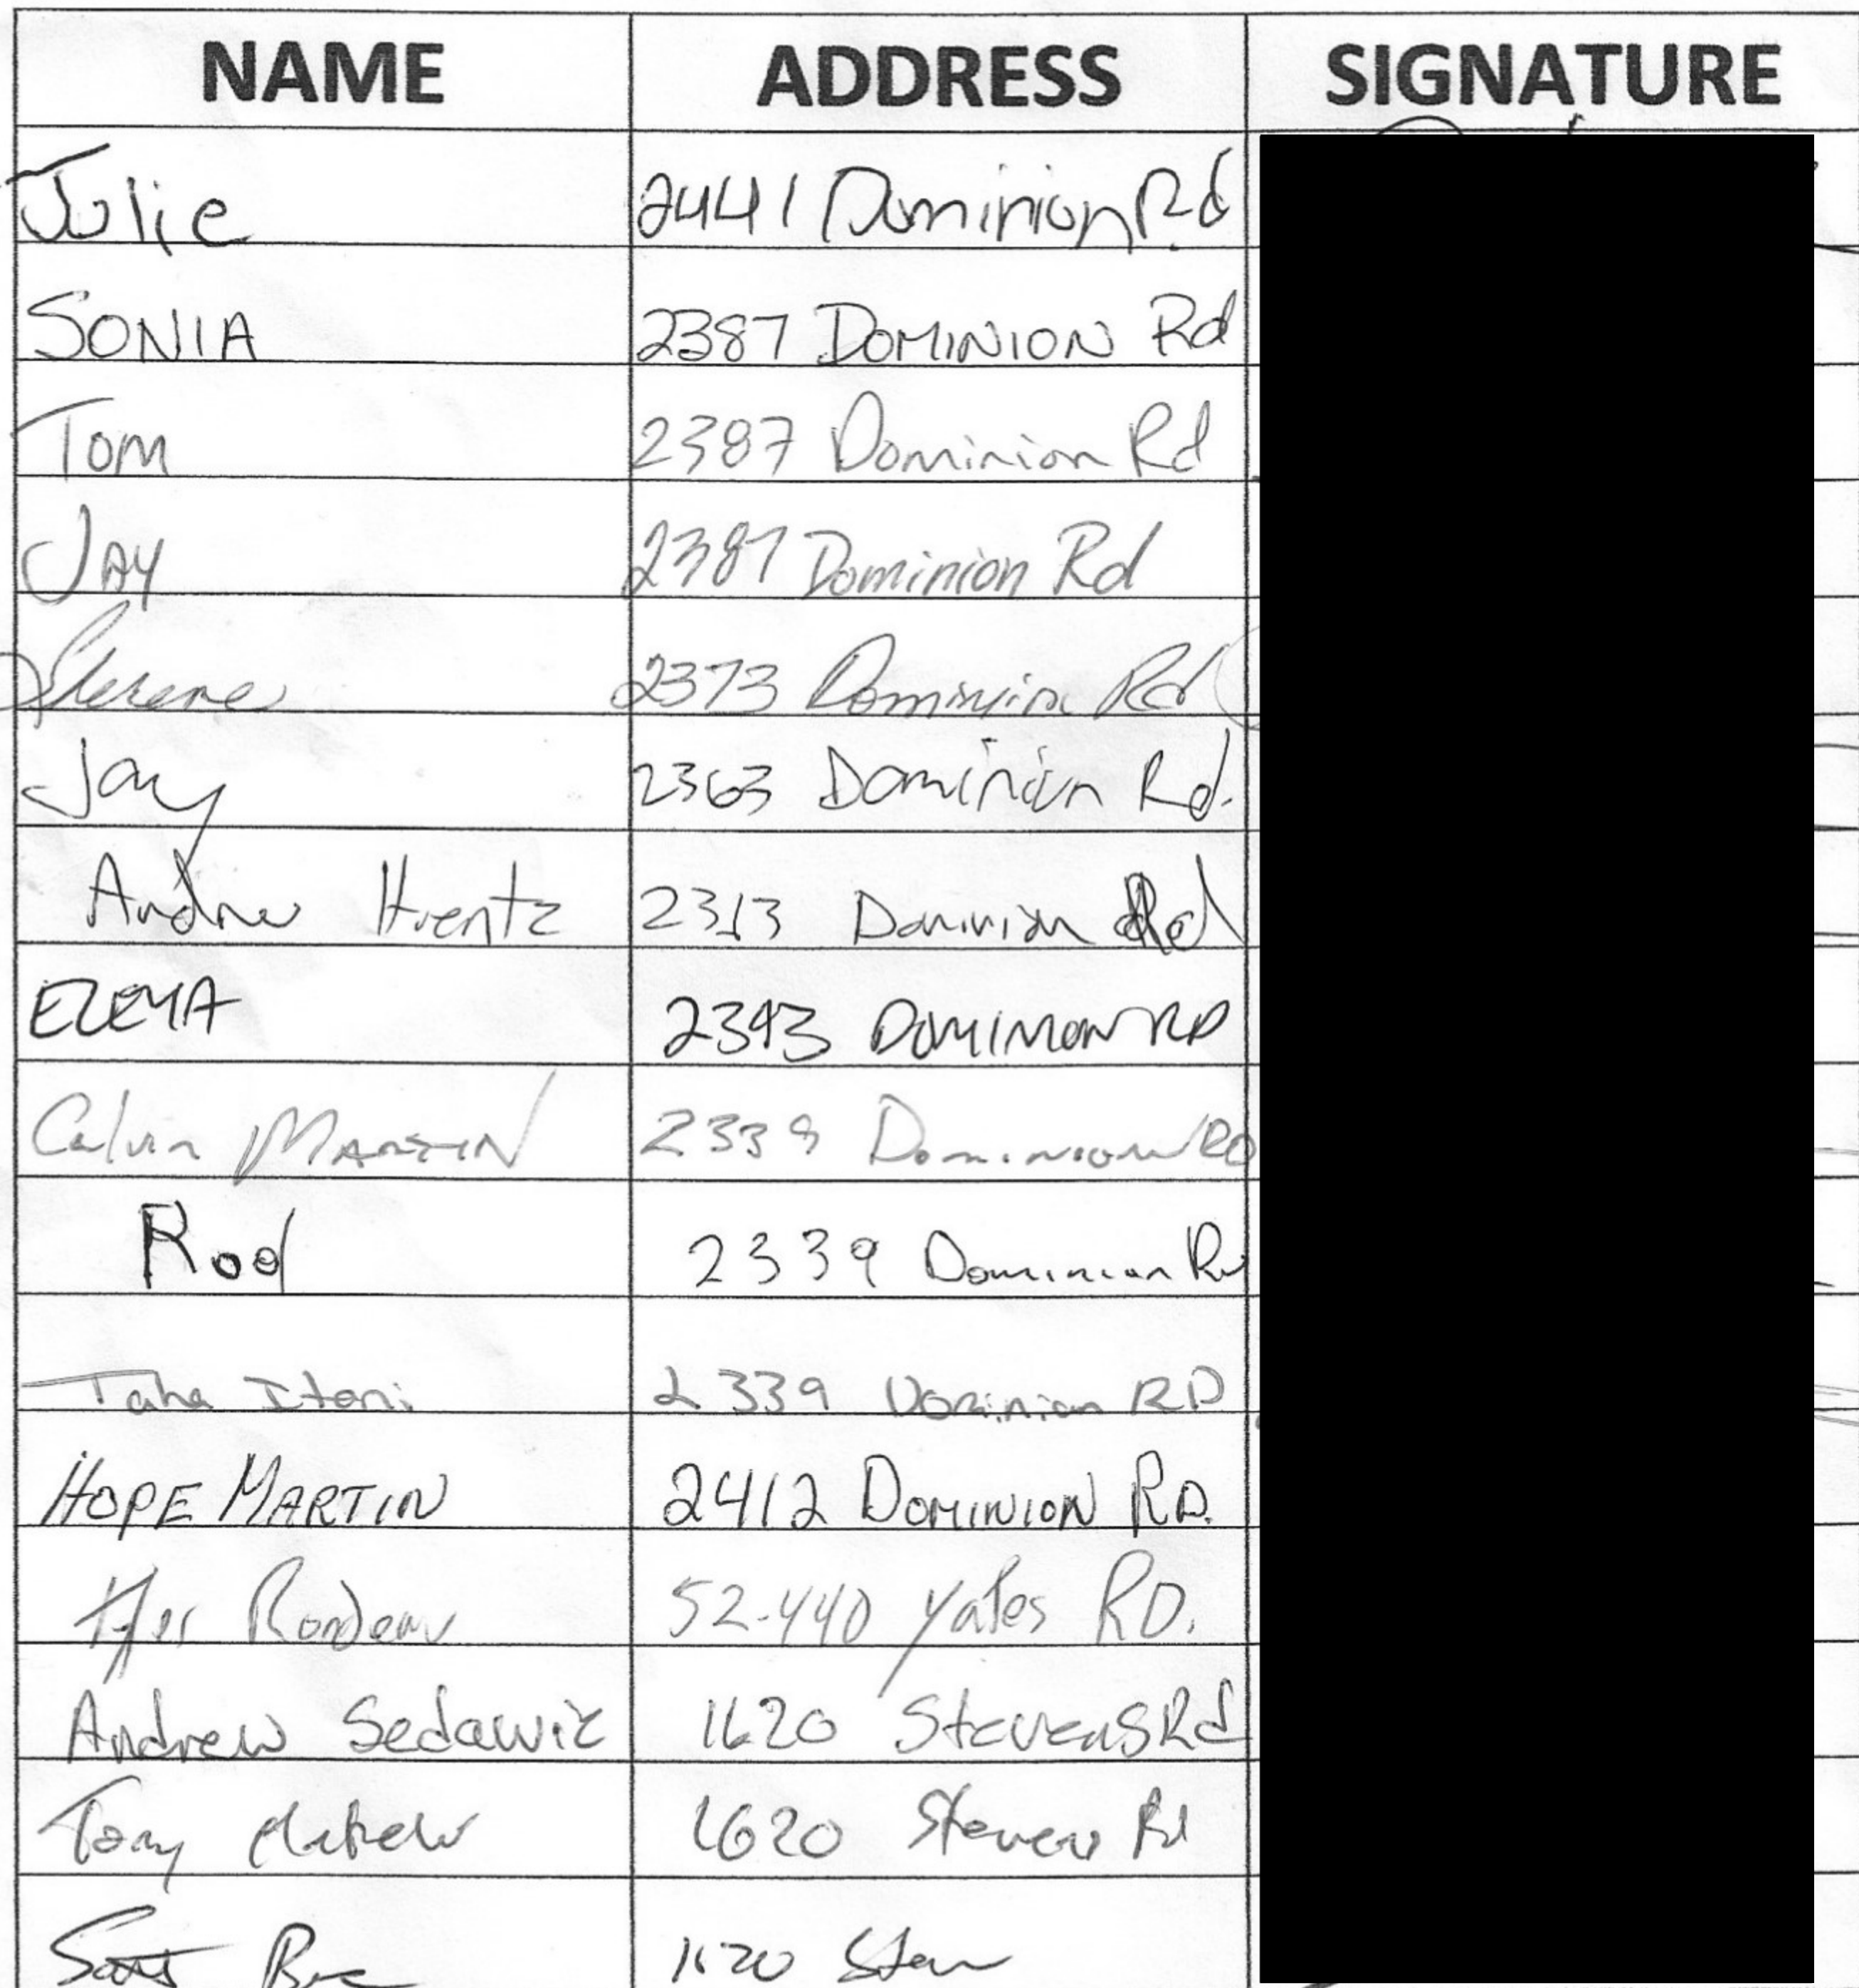 NAME ADDRESS SIGNATURE
Julie 2441 Dominion Rd
SONIA 2387 DOMINION Rd
Tom 2387 Dominion Rd
JAY 2387 Dominion Rd
2373 Rd
Jay 2363 Dominion Rd.
Andrew 2313 Dominion Rd
2393 DOMINION RD
Calvin MARTIN 2339 DOMINION RD
Rod 2339 Dominion Rd
Taha Itani 2339 Dominion RD
HOPE MARTIN 2412 DOMINION RD.
52-440 Yates RD.
Andrew 1620 Stevens Rd
Tony 1620 Steven Rd
1620